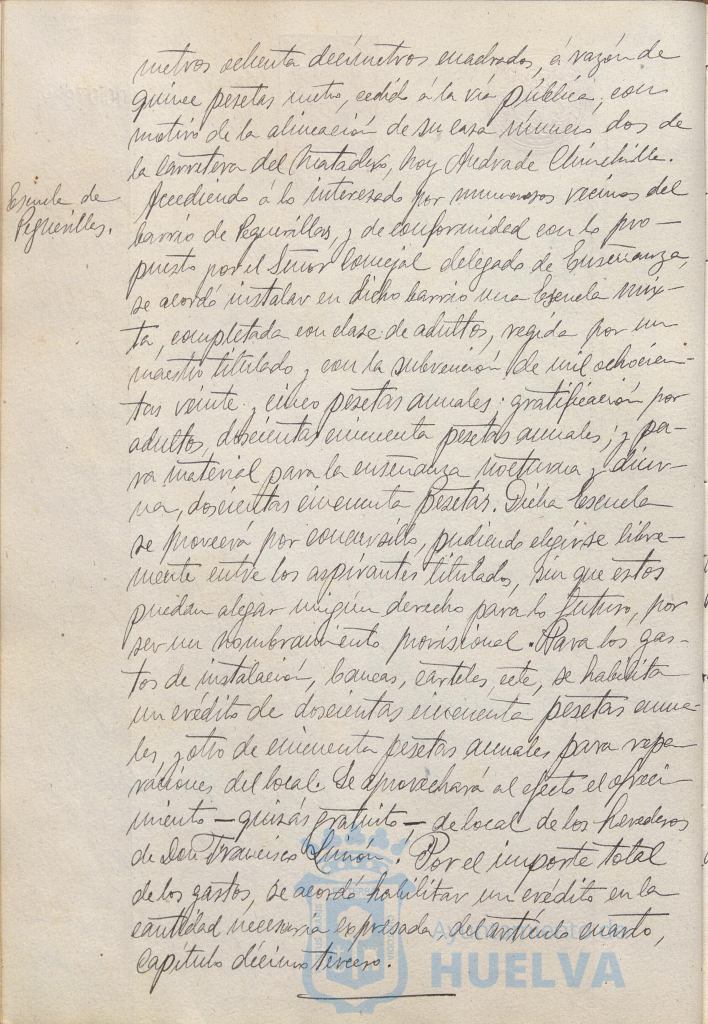 metros ochenta decímetros cuadrados, á razón de
quince pesetas metro, cedido á la vía pública, con
motivo de la alineación de su casa número dos de
la carretera del Matadero, hoy Andrade Chinchilla.
Escuela de
Peguerillas.
Accediendo á lo interesado por numerosos vecinos del
barrio de Peguerillas, y de conformidad con lo pro-
puesto por el Señor Concejal delegado de Enseñanza,
se acordó instalar en dicho barrio una Escuela mix-
ta, completada con clase de adultos, regida por un
maestro titulado y con la subvención de mil ochocien-
tas veinte y cinco pesetas anuales: gratificación por
adultos, doscientas cincuenta pesetas anuales; y pa-
ra material para la enseñanza nocturna y diur-
na, doscientas cincuenta pesetas. Dicha Escuela
se proveerá por concursillo, pudiendo elegirse libre-
mente entre los aspirantes titulados, sin que estos
puedan alegar ningún derecho para lo futuro, por
ser un nombramiento provisional. Para los gas-
tos de instalación, bancas, carteles, etc, se habilita
un crédito de doscientas cincuenta pesetas anua-
les, y otro de cincuenta pesetas anuales para repa-
raciones del local. Se aprovechará al efecto el ofreci-
miento - quizás gratuito - de local de los herederos
de Don Francisco Limón. Por el importe total
de los gastos, se acordó habilitar un crédito en la
cantidad necesaria expresada, del artículo cuarto,
Capítulo décimo tercero.
Ayuntamiento de
HUELVA